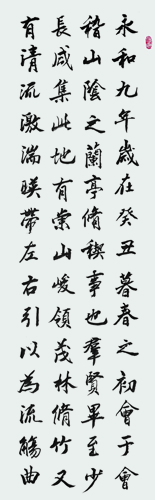 永和九年歲在癸丑暮春之初會于會
稽山陰之蘭亭脩稧事也羣賢畢至少
長咸集此地有崇山峻領茂林脩竹又
有清流激湍暎帶左右引以為流觴曲